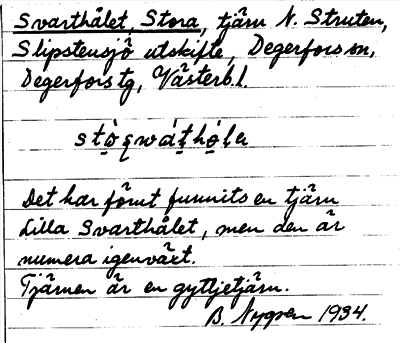 Svarthålet, Stora, tjärn N. Struten,
Slipstensjö utskifte, Degerfors sn,
Degerfors tg, Västerb. l.
stò̱qwát̠hó̱la
Det har förut funnits en tjärn
Lilla Svarthålet, men den är
numera igenväxt.
Tjärnen är en gyttjetjärn.
B. Nygren 1934.